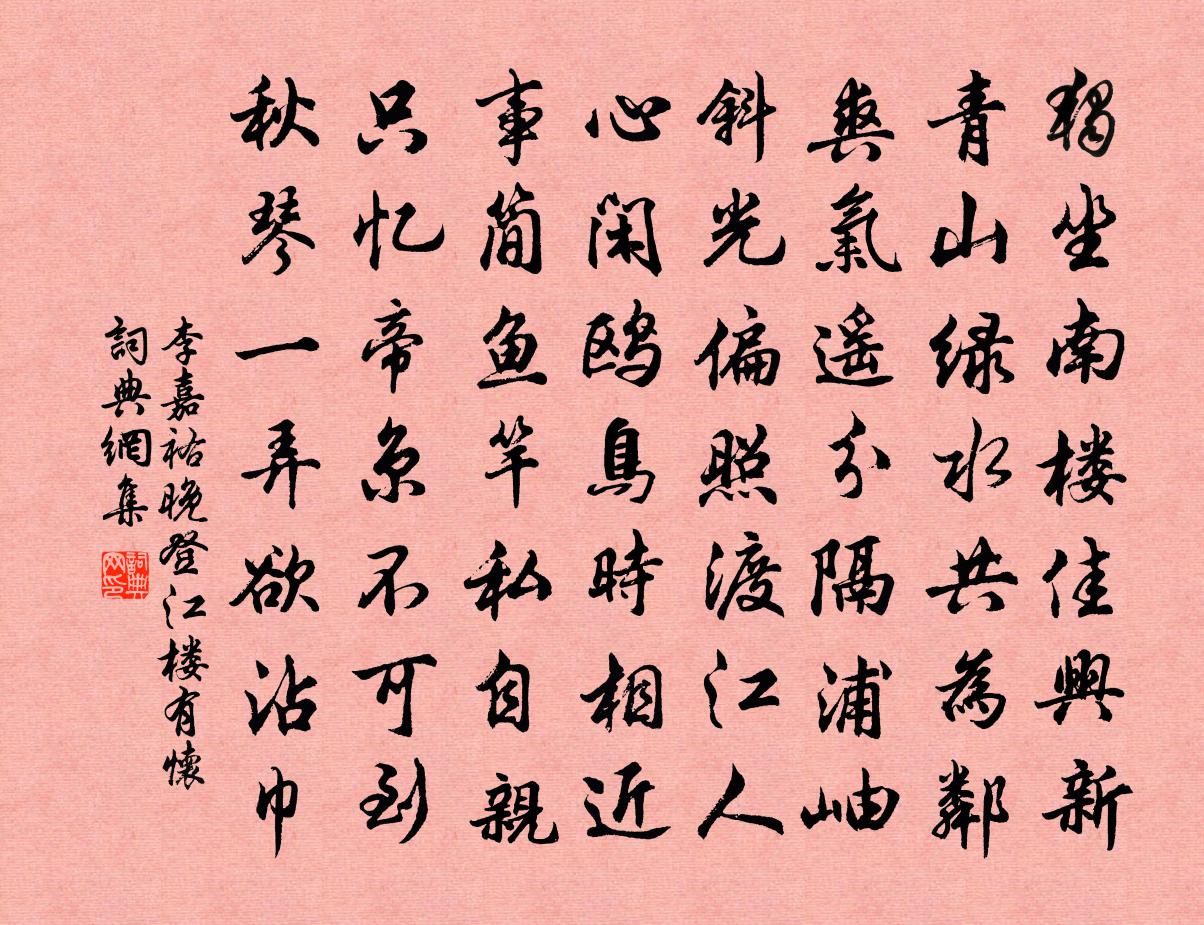 獨坐南楼佳興新
青山绿水共為鄰
爽氣遥分隔浦岫
斜光偏照渡江人
心閑鸥鳥時相近
事簡鱼竿私自親
只忆帝京不可到
秋琴一弄欲沾巾
李嘉祐晚登江楼有懷
詞典網集
詞典网印